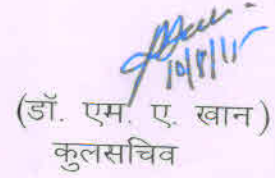 10/8/11
(डॉ. एम. ए. खान)
कुलसचिव